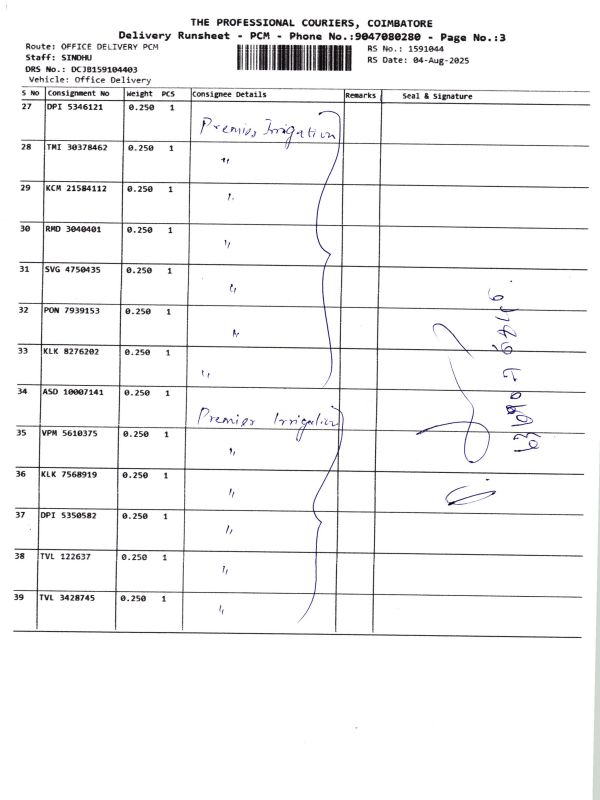 THE PROFESSIONAL COURIERS, COIMBATORE
Delivery Runsheet - PCM - Phone No.:9047080280 - Page No.:3
Route: OFFICE DELIVERY PCM
RS No.: 1591044
Staff: SINDHU
RS Date: 04-Aug-2025
DRS No.: DCJB159104403
Vehicle: Office Delivery
S No Consignment No Weight PCS Consignee Details Remarks Seal & Signature
27 DPI 5346121 0.250 1 Premier Irrigation
28 TMI 30378462 0.250 1 〃
29 KCM 21584112 0.250 1 〃
30 RMD 3040401 0.250 1 〃
31 SVG 4750435 0.250 1 〃
32 PON 7939153 0.250 1 〃
33 KLK 8276202 0.250 1 〃
34 ASD 10007141 0.250 1 Premier Irrigation
35 VPM 5610375 0.250 1 〃
36 KLK 7568919 0.250 1 〃
37 DPI 5350582 0.250 1 〃
38 TVL 122637 0.250 1 〃
39 TVL 3428745 0.250 1 〃